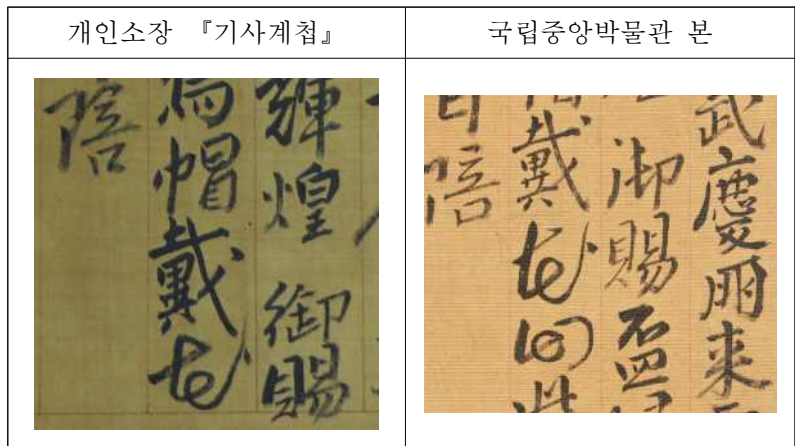 개인소장 『기사계첩』
국립중앙박물관 본
輝煌 御賜
烏帽戴花
陪
武慶朋来
御賜盃
戴花回
陪